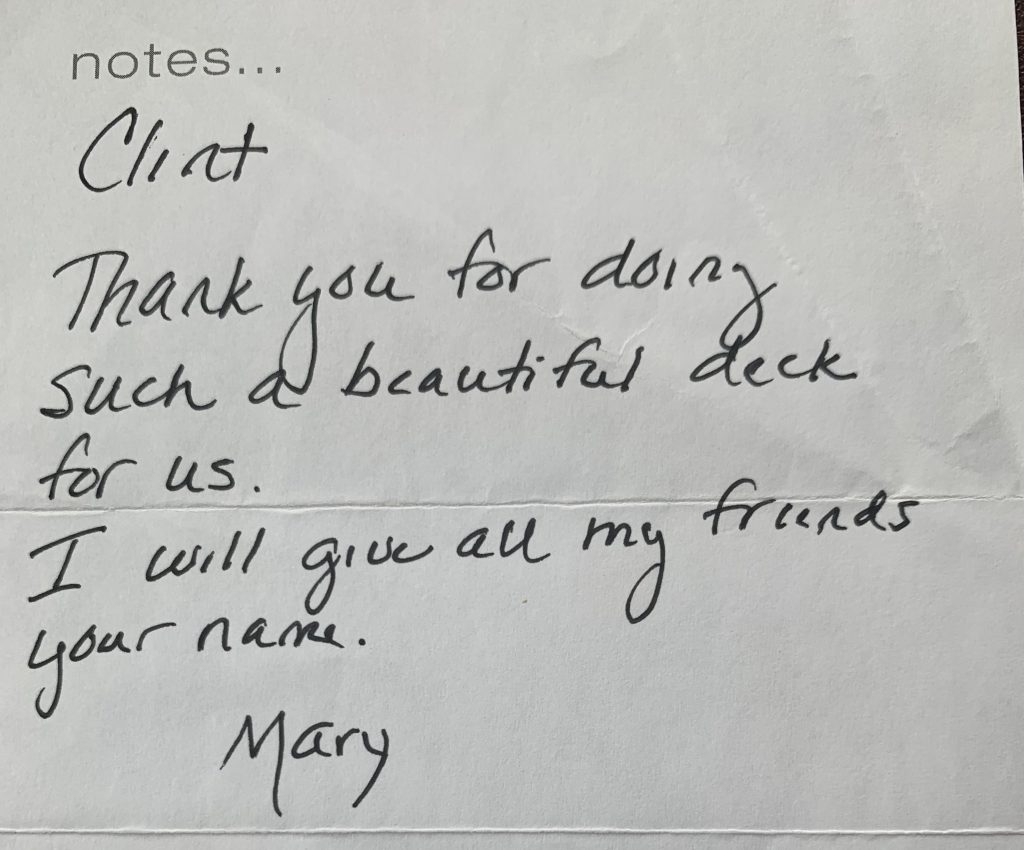 notes...
Clint
Thank you for doing
such a beautiful deck
for us.
I will give all my friends
your name.
Mary